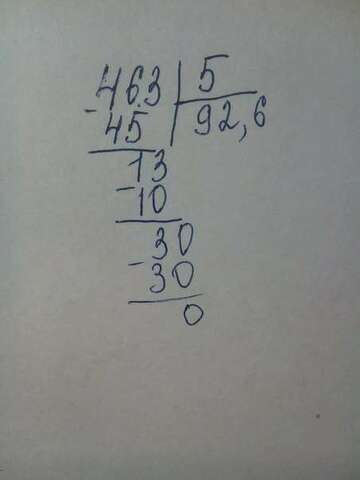 -463 | 5
45 | 92,6
13
-10
30
-30
0